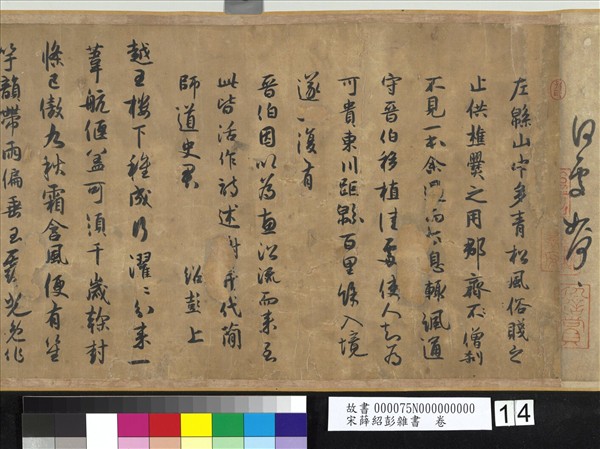 左緜山中多青松風俗賤之
止供樵爨之用郡齋僧刹
不見一本余過而太息輙諷通
守晉伯移植佳處使人知為
可貴東川距緜百里餘入境
遂一復有
晉伯因以為惠沿流而來至
此皆活作詩述謝代簡
師道史君 紹彭上
越王樓下種成行濯濯分來一
葦航偃蓋可須千歲榦封
條已傲九秋霜含風便有笙
竽韻帶雨偏垂玉露光免作
故書 000075N000000000
宋薛紹彭雜書 卷
14